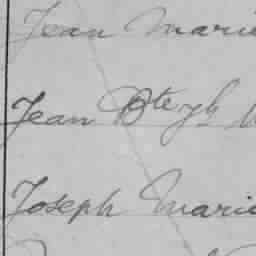 Jean Marie
Jean Bte
Joseph Marie